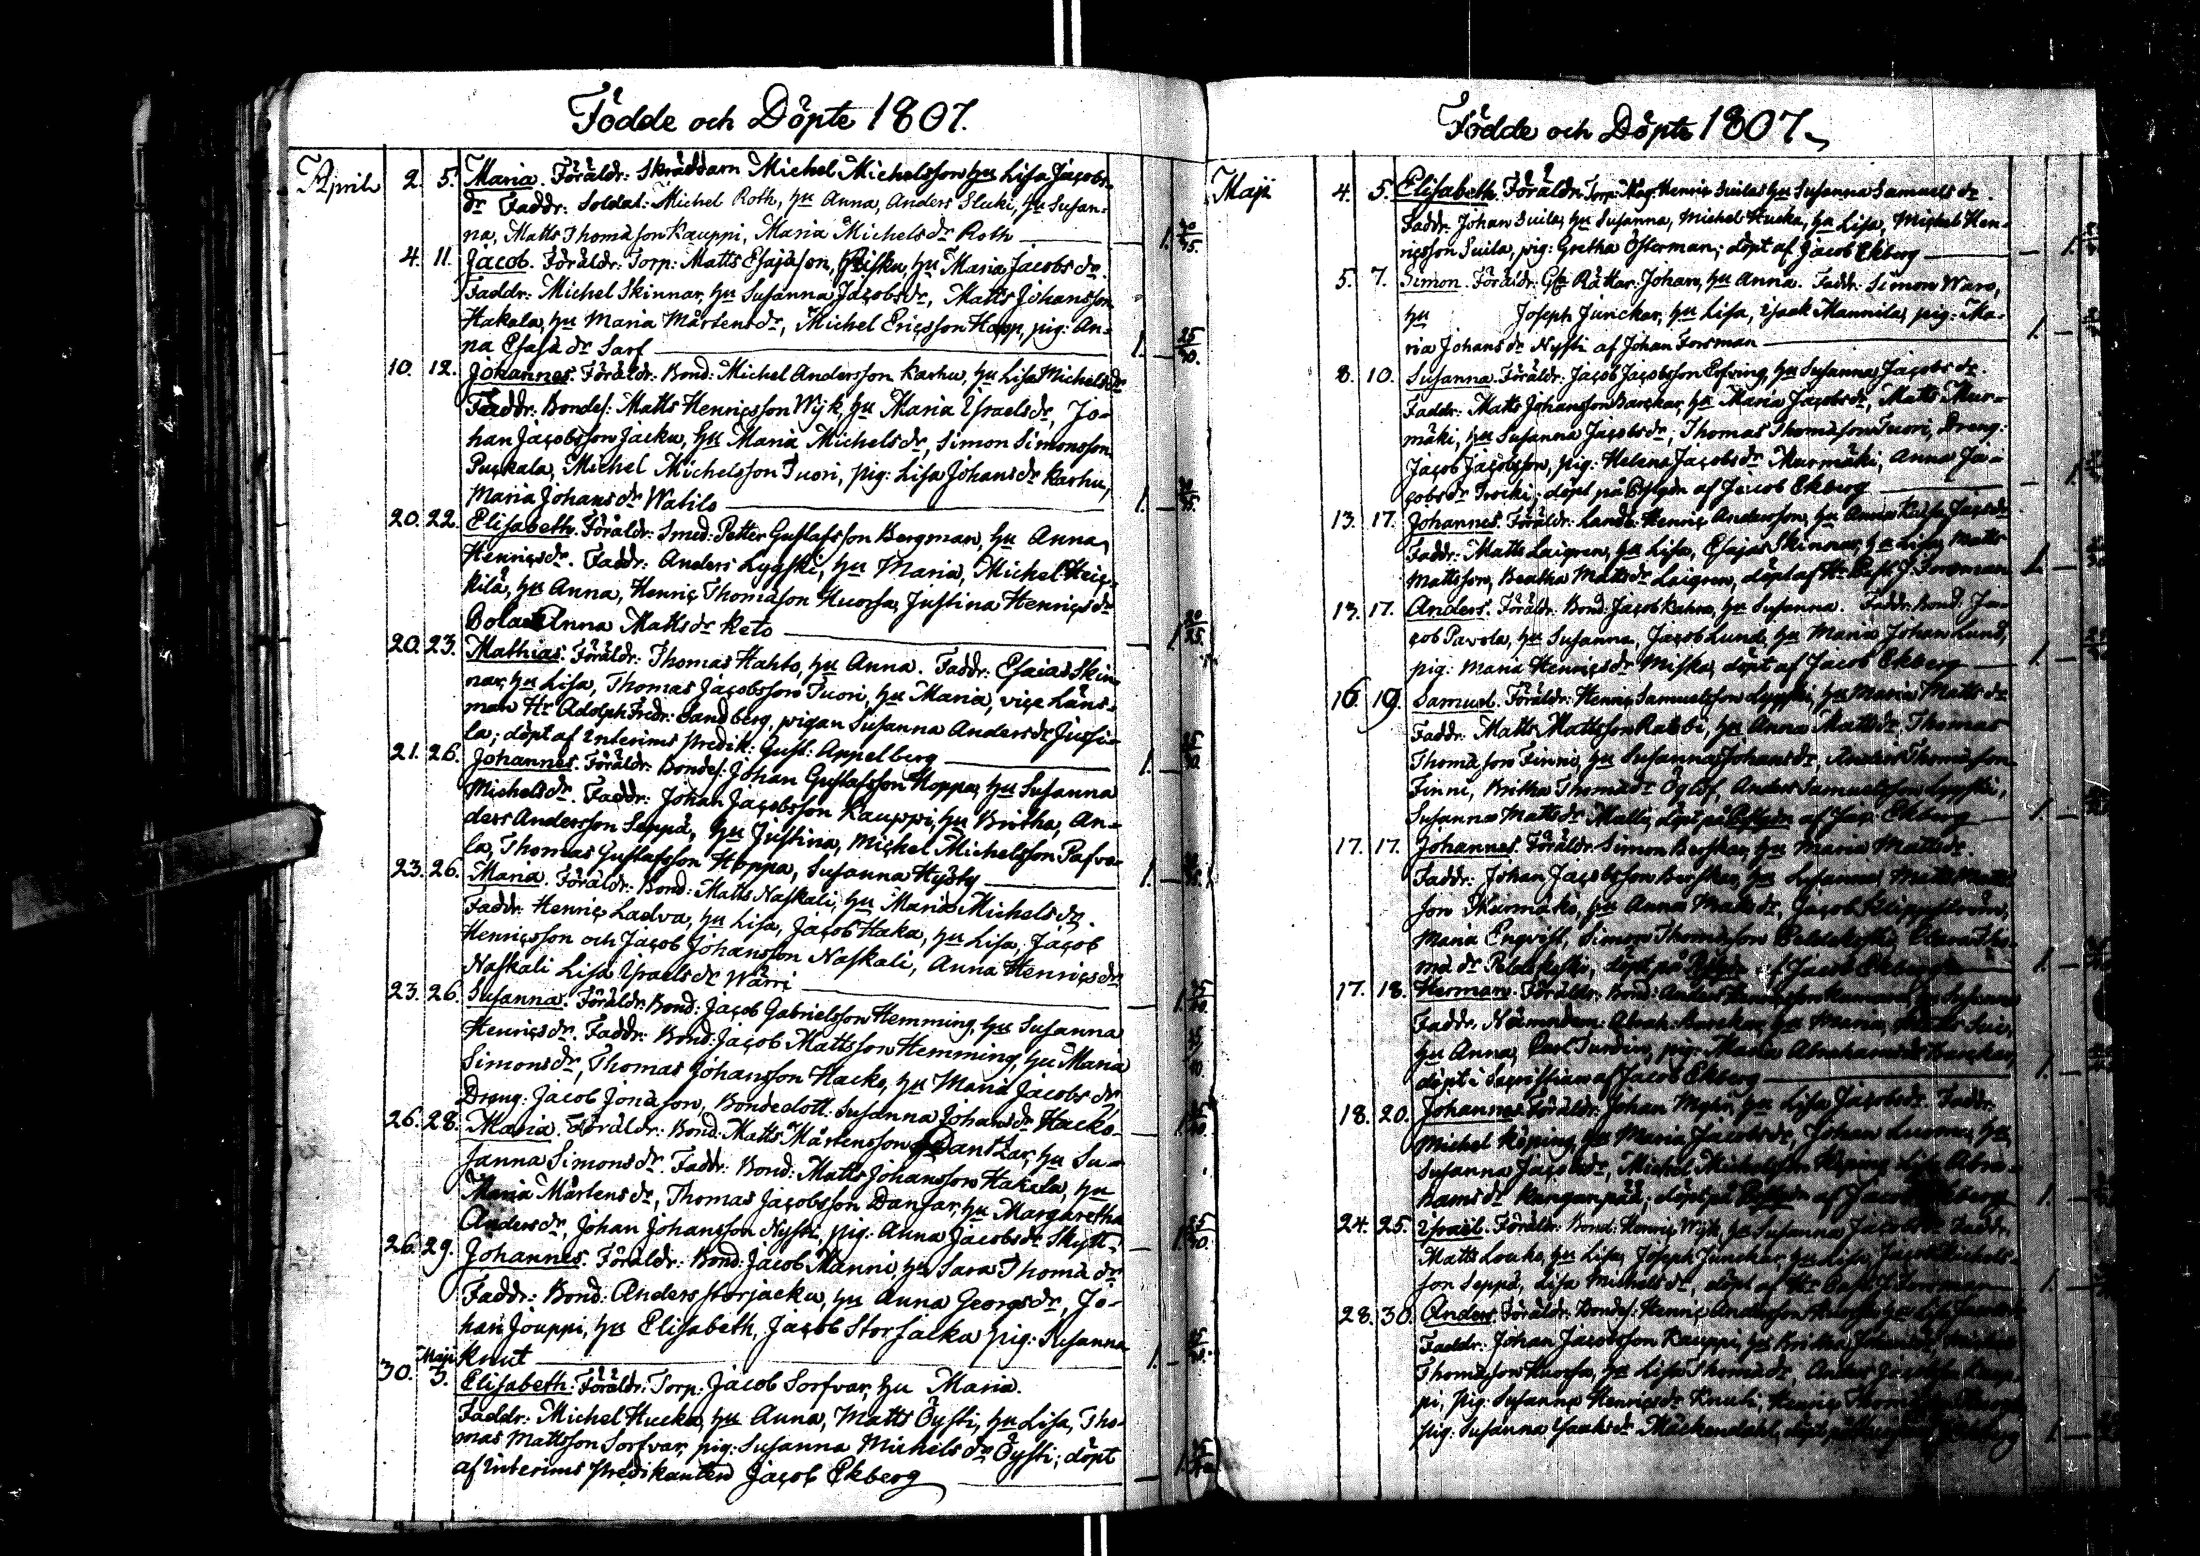 Födde och Döpte 1807.
April 2. 5. Maria. Föräldr: Skräddarn Michel Michelsson hu Lisa Jacobs-
dr Faddr: Soldat: Michel Roth, hu Anna, Anders Sluki, hu Susan-
na, Matts Thomasson Kauppi, Maria Michelsdr Roth
4. 11. Jacob. Föräldr: Torp: Matts Esajason, hu Maria Jacobsdr.
Faddr: Michel Skinnar, hu Susanna Jacobsdr, Matts Johansson
Hakala, hu Maria Mårtensdr, Michel Ericsson Hopp, pig: An-
na Esaiædr Sarf
10. 12. Johannes. Föräldr: Bond: Michel Andersson Karhu, hu Lisa Michelsdr
Faddr: Bondes: Matts Henricsson Wijk, hu Maria Israelsdr, Jo-
han Jacobsson Jacku, hu Maria Michelsdr, Simon Simonsson
Puckala, Michel Michelsson Tuori, pig: Lisa Johansdr Karhu,
Maria Johansdr Watilo
20. 22. Elisabeth. Föräldr: Smed: Petter Gustafsson Bergman, hu Anna
Henricsdr. Faddr: Anders Lygski, hu Maria, Michel Heic-
kilä, hu Anna, Henric Thomason Huorsa, Justina Henricsdr
Anna Mattsdr Keto
20. 23. Mathias. Föräldr: Thomas Hahto, hu Anna. Faddr: Esaias Skin-
nar, hu Lisa, Thomas Jacobsson Tuori, hu Maria, vice Läns-
man Hr Adolph Fredr: Sandberg, pigan Susanna Andersdr Jussi-
la; döpt af Interims Predik: Gust: Appelberg
21. 26. Johannes. Föräldr: Bondes: Johan Gustafsson Hoppa, hu Susanna
Michelsdr. Faddr: Johan Jacobsson Kauppi, hu Britha, An-
ders Andersson Seppä, hu Justina, Michel Michelsson Pafvo-
la, Thomas Gustafsson Hoppa, Susanna Hysty
23. 26. Maria. Föräldr: Bond: Matts Naskali, hu Maria Michelsdr.
Faddr: Henric Ladva, hu Lisa, Jacob Haka, hu Lisa, Jacob
Henricsson och Jacob Johansson Naskali, Anna Henricsdr
Naskali Lisa Israelsdr Wärri
23. 26. Susanna. Föräldr: Bond: Jacob Gabrielsson Hemming, hu Susanna
Henricsdr. Faddr: Bond: Jacob Mattsson Hemming, hu Maria
Simonsdr, Thomas Johansson Hacko, hu Maria Jacobsdr
Dreng: Jacob Jonason, Bondedott: Susanna Johansdr Hacko
26. 28. Maria. Föräldr: Bond: Matts Mårtensson Dantzar, hu Su-
sanna Simonsdr. Faddr: Bond: Matts Johansson Hakala, hu
Maria Mårtensdr, Thomas Jacobsson Dansar, hu Margaretha
Andersdr, Johan Johansson Nysti, pig: Anna Jacobsdr Skytt
26. 29. Johannes. Föräldr: Bond: Jacob Manni, hu Sara Thomædr
Faddr: Bond: Anders Storjacku, hu Anna Georgsdr, Jo-
han Jouppi, hu Elisabeth, Jacob Storjacka pig: Susanna
Knut
30. Maji 3. Elisabeth. Föräldr: Torp: Jacob Sorfvar, hu Maria.
Faddr: Michel Hucka, hu Anna, Matts Öysti, hu Lisa, Tho-
mas Mattsson Sorfvar, pig: Susanna Michelsdr Öysti; döpt
af Interims Predikanten Jacob Ekberg
Födde och Döpte 1807.
Maji 4. 5. Elisabeth. Föräldr: Torp: Henric Suila, hu Susanna Samuelsdr.
Faddr: Johan Suila, hu Susanna, Michel Hucka, hu Lisa, Michel Hen-
ricsson Suila, pig: Gretha Österman; döpt af Jacob Ekberg
5. 7. Simon. Föräldr: Rättar: Johan, hu Anna. Faddr: Simon Waro,
hu Joseph Junckar, hu Lisa, Isaak Mannila, pig: Ma-
ria Johansdr Nysti af Johan Forsman
8. 10. Susanna. Föräldr: Jacob Jacobsson, hu Susanna Jacobsdr.
Faddr: Matts Johansson Barckar, hu Maria Jacobsdr, Matts Mur-
mäki, hu Susanna Jacobsdr; Thomas Thomasson Tuori, Dreng:
Jacob Jacobsson, pig: Helena Jacobsdr Murmäki, Anna Ja-
cobsdr; döpt på af Jacob Ekberg
13. 17. Johannes. Föräldr: Landb: Henric Andersson, hu Anna
Faddr: Matts Laigren, hu Lisa, Esajas Skinnar, hu Lisa, Matts
Mattsson, Beatha Mattsdr Laigren, döpt af Hr J. Forsman
13. 17. Anders. Föräldr: Bond: Jacob Kahra, hu Susanna. Faddr: Bond: Ja-
cob Pavola, hu Susanna, Jacob Lund, hu Maria Johan Lund,
pig: Maria Henricsdr Miska, döpt af Jacob Ekberg
16. 19. Samuel. Föräldr: Henric Samuelsson, hu Maria Mattsdr
Faddr: Matts Mattsson Rabbi, hu Anna Mattsdr, Thomas
Thomason Finni, hu Susanna Johansdr, Anders Thomason
Finni, Britha Thomædr, Anders Samuelsson
Susanna Mattsdr Malli, döpt på af Jac: Ekberg
17. 17. Johannes. Föräldr: Simon, hu Maria Mattsdr.
Faddr: Johan Jacobsson, hu Susanna, Matts Matts-
son Murmäki, hu Anna Mattsdr, Jacob Klippström,
Maria Enqvist, Simon Thomasson Peldokoski, Clara Tho-
mædr, döpt på af Jacob Ekberg
17. 18. Herman. Föräldr: Bond: Anders Henricsson, hu Susanna
Faddr: Nämndem: Abrah: Barckar, hu Maria, Matts
hu Anna, Carl Sundin, pig: Maria Abrahamsdr Barckar,
döpt i Sacristian af Jacob Ekberg
18. 20. Johannes. Föräldr: Johan, hu Lisa Jacobsdr. Faddr:
Michel Köping, hu Maria Jacobsdr, Johan Luoma, hu
Susanna Jacobsdr, Michel Michelsson Köping, Lisa Abra-
hamsdr Kangarpää; döpt på af Jacob Ekberg
24. 25. Israel. Föräldr: Bond: Henric Wijk, hu Susanna Jacobsdr. Faddr:
Matts Louko, hu Lisa, Joseph Junckar, hu Lisa, Jacob Michels-
son Seppä, Lisa Michelsdr, döpt af Hr J. Forsman
28. 30. Anders. Föräldr: Bondes: Henric Andersson
Faddr: Johan Jacobsson Kauppi, hu Britha
Thomasson Huorsa, hu Lisa Thomædr, Anders Jacobsson Kaup-
pi, pig: Susanna Henricsdr Knuti, Henric
pig: Susanna Isaaksdr, döpt